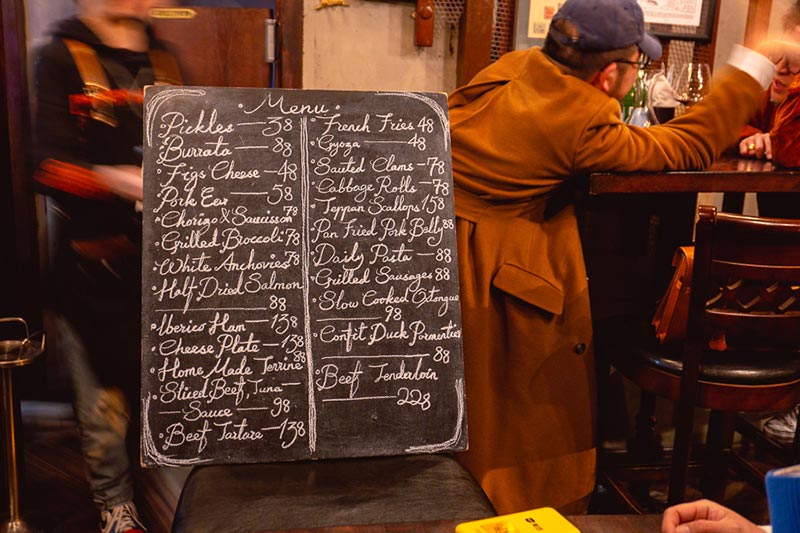 Menu
Pickles — 38
Burrata — 88
Figs Cheese — 48
Pork Ear — 58
Chorizo & Saucisson 78
Grilled Broccoli 78
White Anchovies 78
Half Dried Salmon
— 88 —
Iberico Ham — 138
Cheese Plate — 138
Home Made Terrine 88
Sliced Beef, Tuna
— Sauce — 98
Beef Tartare — 138
French Fries 48
Gyoza — 48
Sauted Clams — 78
Cabbage Rolls — 78
Teppan Scallops 158
Pan Fried Pork Belly 88
Daily Pasta — 88
Grilled Sausages 88
Slow Cooked Oxtongue
— 98
Confit Duck Parmentier
— 88
Beef Tenderloin
— 228